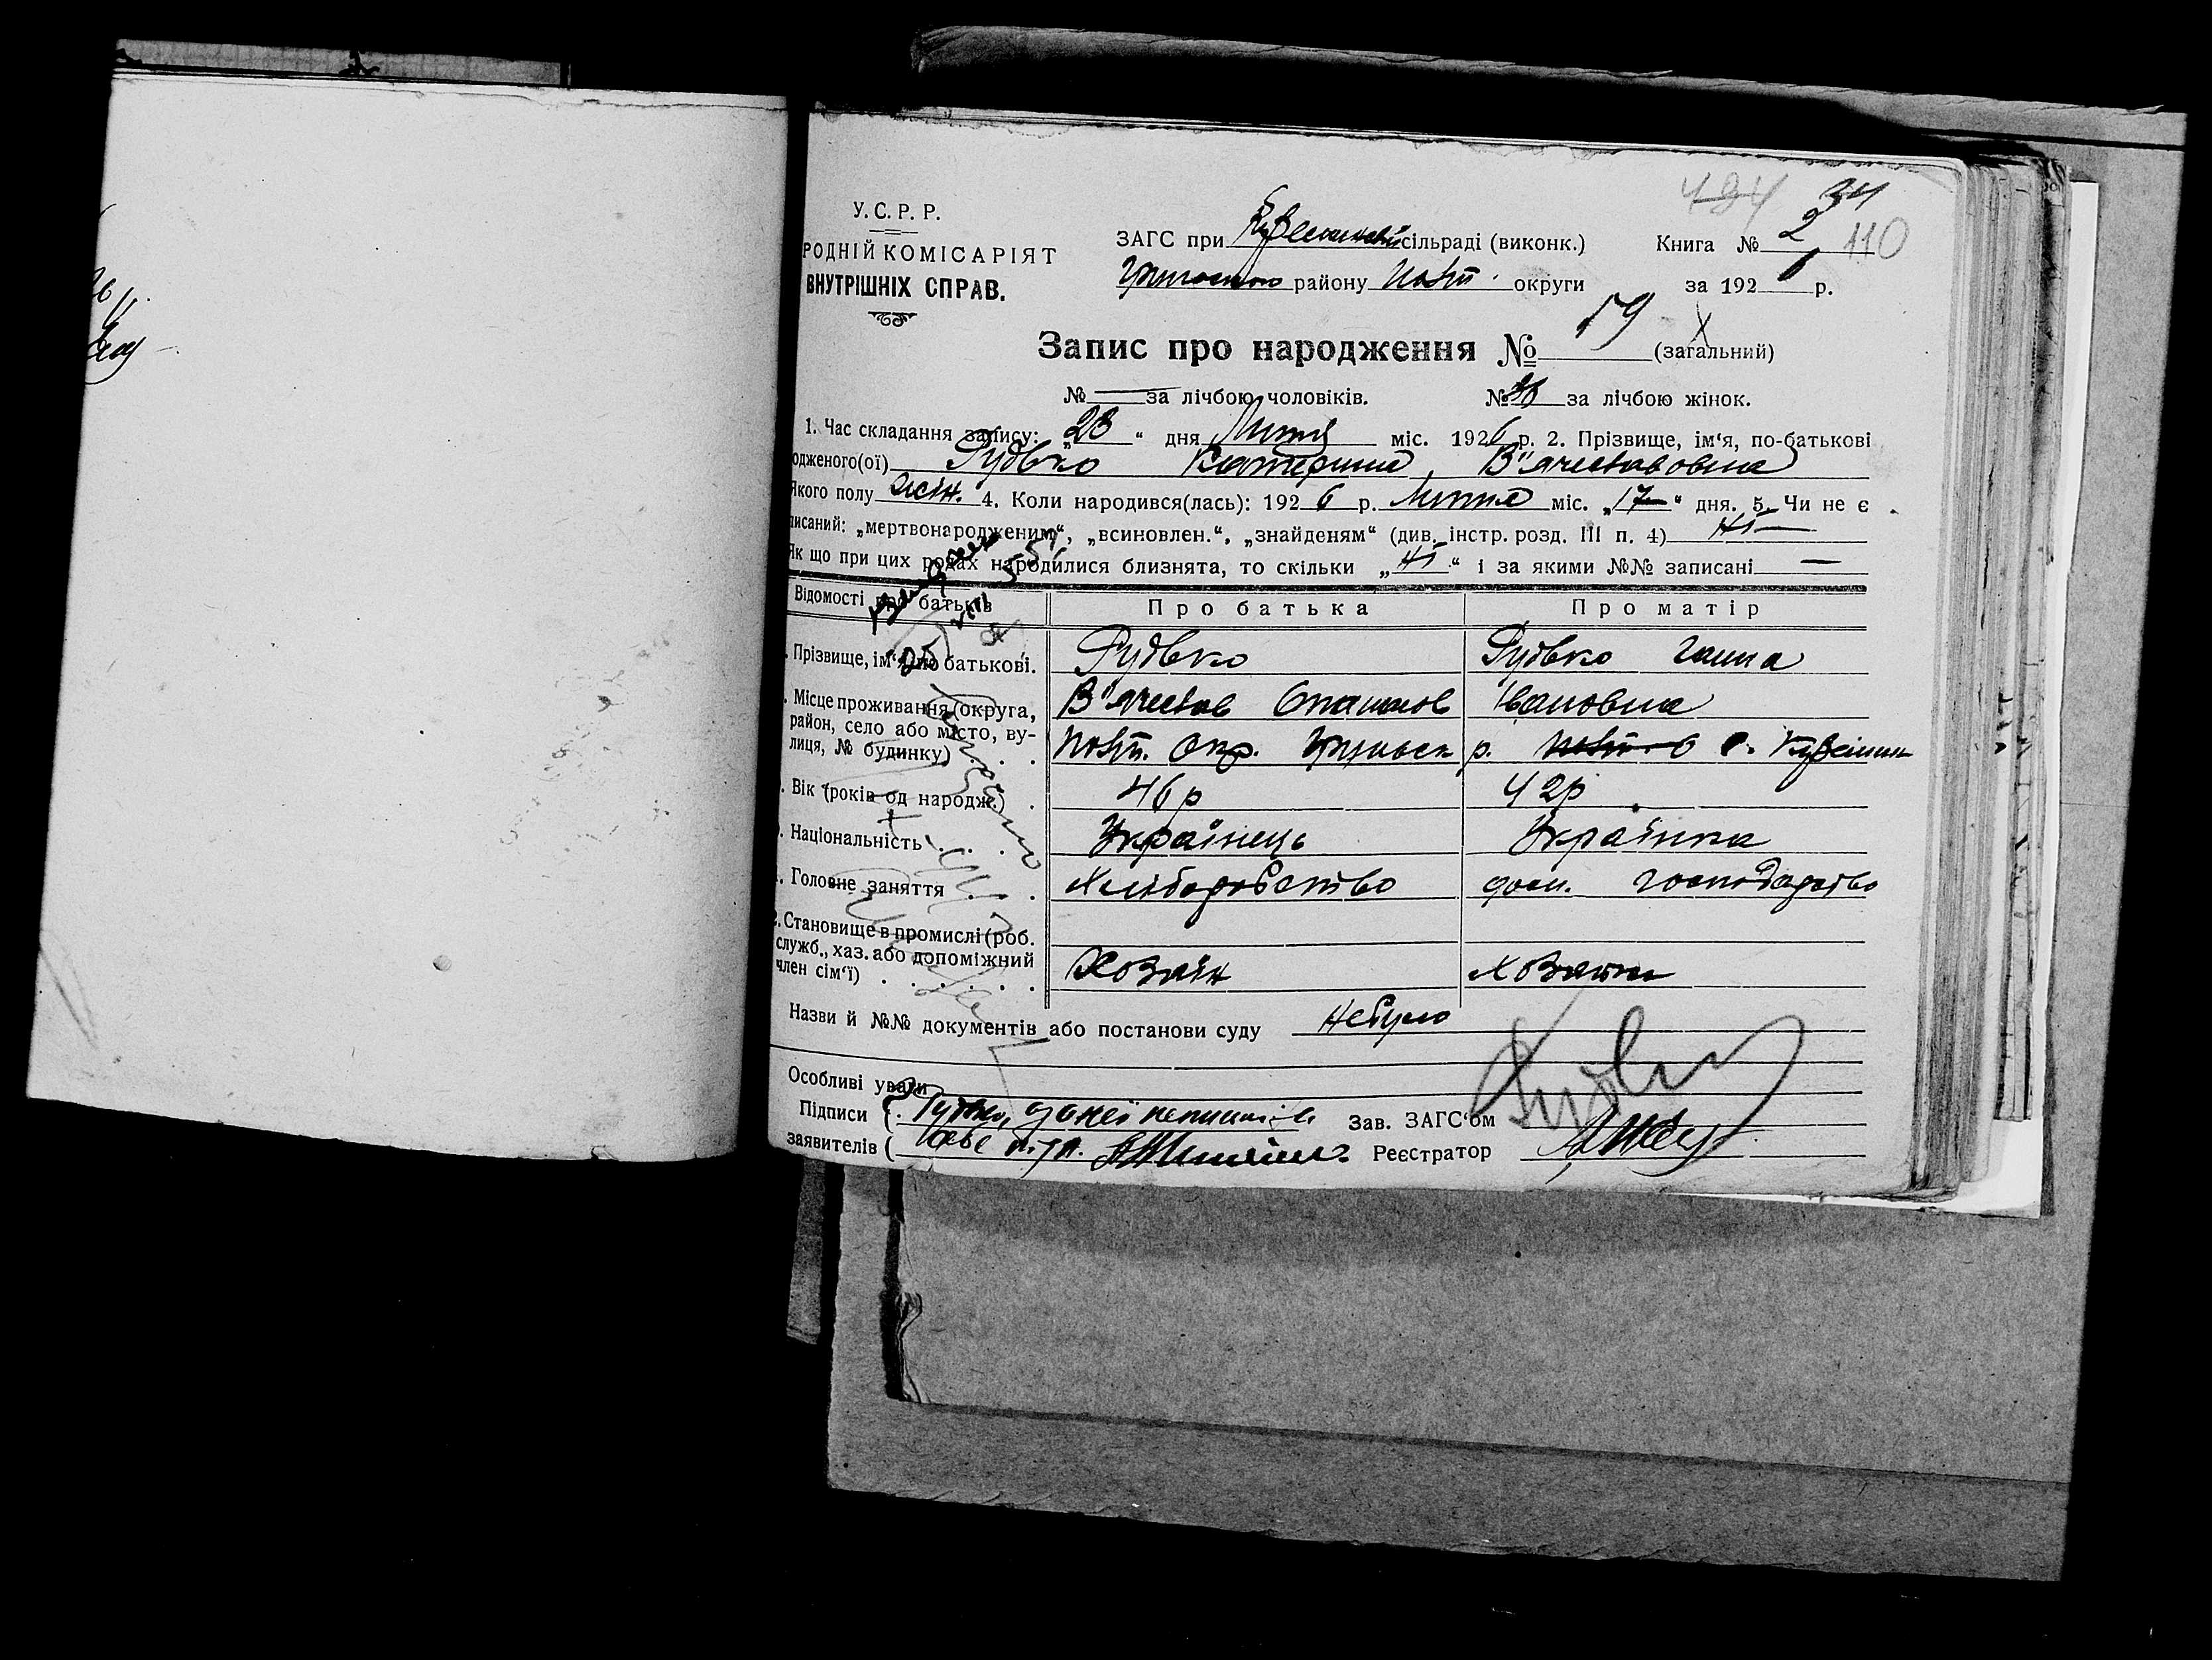 У. С. Р. Р.
РОДНІЙ КОМІСАРІЯТ
ВНУТРІШНІХ СПРАВ.
ЗАГС при сільраді (виконк.)
району Полт. округи
484 34
Книга № 2 110
за 1926 р.
Запис про народження № 79 (загальний)
№ — за лічбою чоловіків. № за лічбою жінок.
1. Час складання запису: „23“ дня Липня міс. 1926 р. 2. Прізвище, ім‘я, по-батькові
одженого(ої) Рудько Катерина, В"ячеславовна
Якого полу жін. 4. Коли народився(лась): 1926 р. Липня міс. „17“ дня. 5. Чи не є
писаний: „мертвонародженим“, „всиновлен.“, „знайденям“ (див. інстр. розд. III п. 4) Ні —
Як що при цих родах народилися близнята, то скільки „Ні“ і за якими №№ записані —
Відомості про батьків Про батька Про матір
Прізвище, ім‘я, по батькові. Рудько Рудько Ганна
В"ячеслав Івановна
Місце проживання (округа,
район, село або місто, ву-
лиця, № будинку) Полт. Окр. р. с.
Вік (років од народж.) 46 р 42 р
Національність Українець Українка
Головне заняття Хліборобство дом. господарство
Становище в промислі (роб.
служб., хаз. або допоміжний
член сім‘ї) Хозяїн Хозяйка
Назви й №№ документів або постанови суду Небуло
Особливі уваги
Підписи Рудько, Зав. ЗАГС‘ом
заявителів Реєстратор